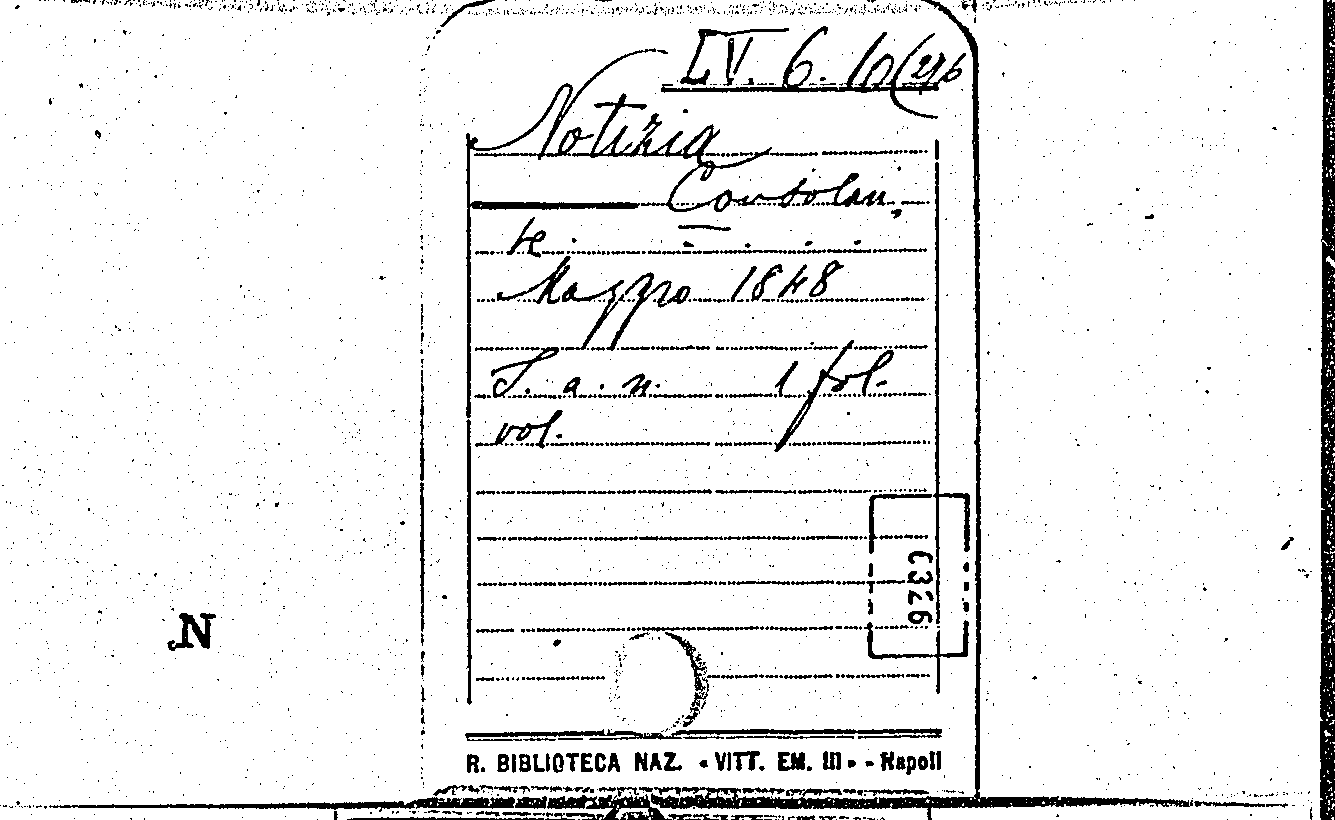 LV. 6. 10(276
Notizia
Consolan,
te. — . . . .
Maggio 1848
S. a. n. 1 fol.
vol.
6326
N
R. BIBLIOTECA NAZ. «VITT. EM. III» - Napoli